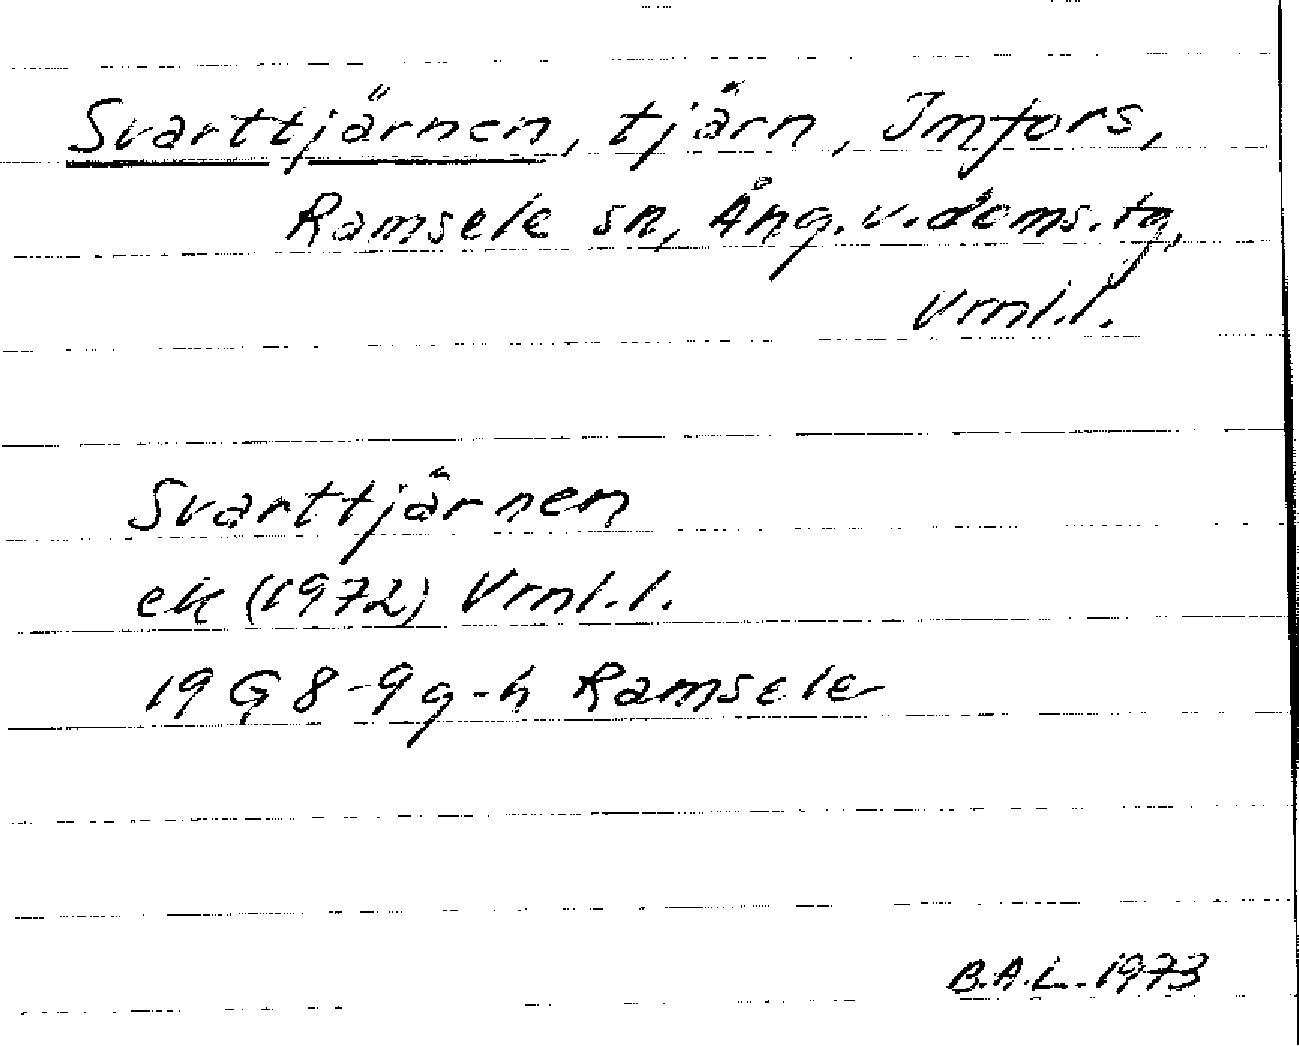 Svarttjärnen, tjärn, Imfors,
Ramsele sn, Ång.v.doms.tg,
Vrnl.l.
Svarttjärnen
ek (1972) Vrnl.l.
19 G 8-9 g-h Ramsele
B.A.L. 1973